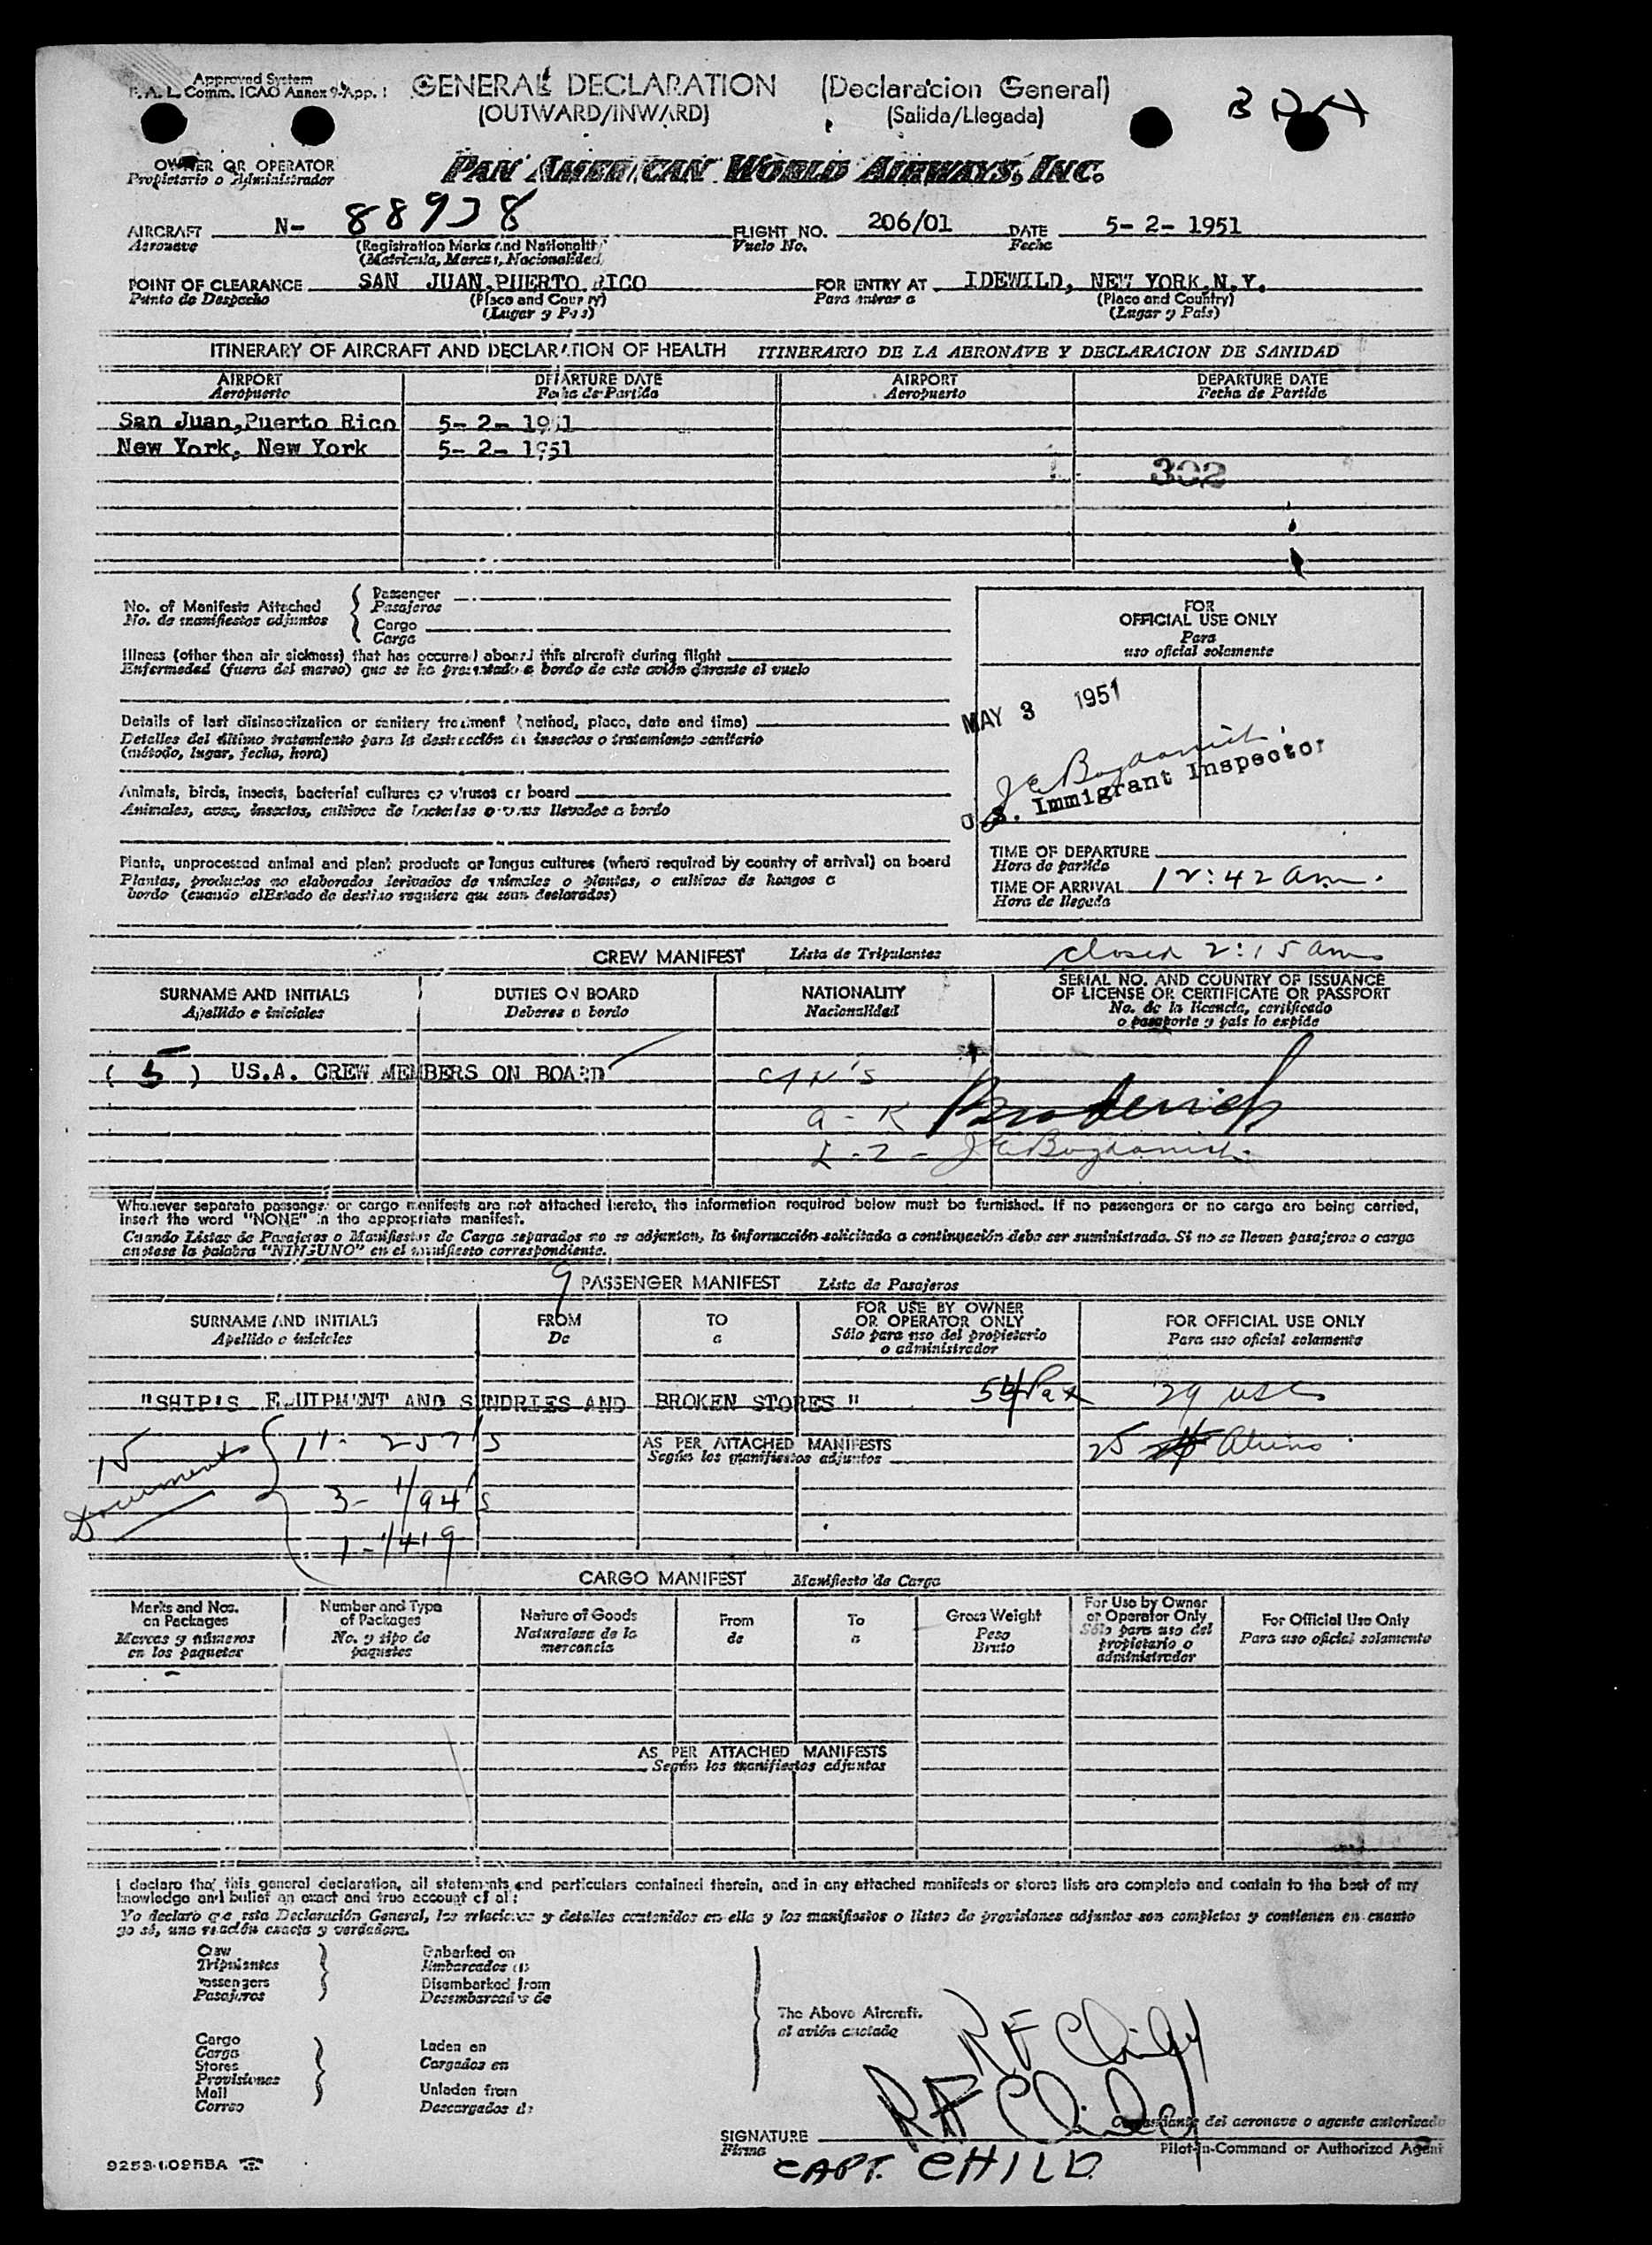 Approved System
F. A. L. Comm. ICAO Annex 9-App. 1
GENERAL DECLARATION (Declaracion General)
(OUTWARD/INWARD) (Salida/Llegada)
OWNER OR OPERATOR
Propietario o Administrador
PAN AMERICAN WORLD AIRWAYS, INC.
AIRCRAFT N- 88938 FLIGHT NO. 206/01 DATE 5- 2- 1951
Aeronave (Registration Marks and Nationality) Vuelo No. Fecha
(Matricula, Marcas, Nacionalidad)
POINT OF CLEARANCE SAN JUAN, PUERTO RICO FOR ENTRY AT IDEWILD, NEW YORK, N.Y.
Punto de Despacho (Place and Country) Para entrar a (Place and Country)
(Lugar y Pais) (Lugar y Pais)
ITINERARY OF AIRCRAFT AND DECLARATION OF HEALTH ITINERARIO DE LA AERONAVE Y DECLARACION DE SANIDAD
AIRPORT DEPARTURE DATE AIRPORT DEPARTURE DATE
Aeropuerto Fecha de Partida Aeropuerto Fecha de Partida
San Juan, Puerto Rico 5- 2- 1951
New York, New York 5- 2- 1951
302
No. of Manifests Attached Passenger
No. de manifiestos adjuntos Pasajeros
Cargo
Carga
FOR
OFFICIAL USE ONLY
Para
uso oficial solamente
Illness (other than air sickness) that has occurred aboard this aircraft during flight
Enfermedad (fuera del mareo) que se ha presentado a bordo de este avión durante el vuelo
MAY 3 1951
Details of last disinsectization or sanitary treatment (method, place, date and time)
Detalles del último tratamiento para la destrucción de insectos o tratamiento sanitario
(método, lugar, fecha, hora)
J E Bogdanich
U.S. Immigrant Inspector
Animals, birds, insects, bacterial cultures or viruses on board
Animales, aves, insectos, cultivos de bacterias o virus llevados a bordo
Plants, unprocessed animal and plant products or fungus cultures (where required by country of arrival) on board
Plantas, productos no elaborados derivados de animales o plantas, o cultivos de hongos a
bordo (cuando el Estado de destino requiere que sean declarados)
TIME OF DEPARTURE
Hora de partida
TIME OF ARRIVAL 12:42 am.
Hora de llegada
CREW MANIFEST Lista de Tripulantes closed 2:15 am
SURNAME AND INITIALS DUTIES ON BOARD NATIONALITY SERIAL NO. AND COUNTRY OF ISSUANCE
OF LICENSE OR CERTIFICATE OR PASSPORT
Apellido e iniciales Deberes a bordo Nacionalidad No. de la licencia, certificado
o pasaporte y país lo expide
( 5 ) US.A. CREW MEMBERS ON BOARD
a - K Broderick
L - Z - J E Bogdanich
Whenever separate passenger or cargo manifests are not attached hereto, the information required below must be furnished. If no passengers or no cargo are being carried,
insert the word "NONE" in the appropriate manifest.
Cuando Listas de Pasajeros o Manifiestos de Carga separados no se adjuntan, la información solicitada a continuación debe ser suministrada. Si no se llevan pasajeros o carga
anotese la palabra "NINGUNO" en el manifiesto correspondiente.
9 PASSENGER MANIFEST Lista de Pasajeros
SURNAME AND INITIALS FROM TO FOR USE BY OWNER
OR OPERATOR ONLY FOR OFFICIAL USE ONLY
Apellido e iniciales De a Sólo para uso del propietario
o administrador Para uso oficial solamente
"SHIP'S EQUIPMENT AND SUNDRIES AND BROKEN STORES" 54 Pax 29 USC
15 Documents 11- 257's
AS PER ATTACHED MANIFESTS 25 Aliens
Según los manifiestos adjuntos
3- I/94's
1- I/419
CARGO MANIFEST Manifiesto de Carga
Marks and Nos.
on Packages
Marcas y números
en los paquetes
Number and Type
of Packages
No. y tipo de
paquetes
Nature of Goods
Naturaleza de la
mercancia
From
de
To
a
Gross Weight
Peso
Bruto
For Use by Owner
or Operator Only
Sólo para uso del
propietario o
administrador
For Official Use Only
Para uso oficial solamente
AS PER ATTACHED MANIFESTS
Según los manifiestos adjuntos
I declare that this general declaration, all statements and particulars contained therein, and in any attached manifests or stores lists are complete and contain to the best of my
knowledge and belief an exact and true account of all:
Yo declaro que esta Declaración General, las relaciones y detalles contenidos en ella y los manifiestos o listas de provisiones adjuntos son completos y contienen en cuanto
yo sé, una relación exacta y verdadera.
Crew Embarked on
Tripulantes Embarcados en
Passengers Disembarked from
Pasajeros Desembarcados de
The Above Aircraft.
el avión citado
Cargo
Carga
Stores
Provisiones
Mail
Correo
Laden on
Cargados en
Unladen from
Descargados de
R F Child
R F Child
Comandante del aeronave o agente autorizado
SIGNATURE
Firma
Pilot-in-Command or Authorized Agent
CAPT. CHILD